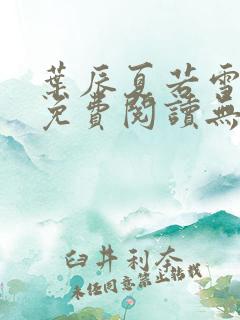 葉辰夏若雪
免費閱讀無
臼井利奈
未经同意禁止转载